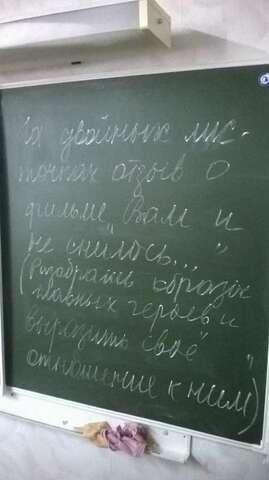 На двойных лис-
точках отзыв о
фильме „Вам и
не снилось..."
(Разобрать образы
главных героев и
выразить своё
отношение к ним)